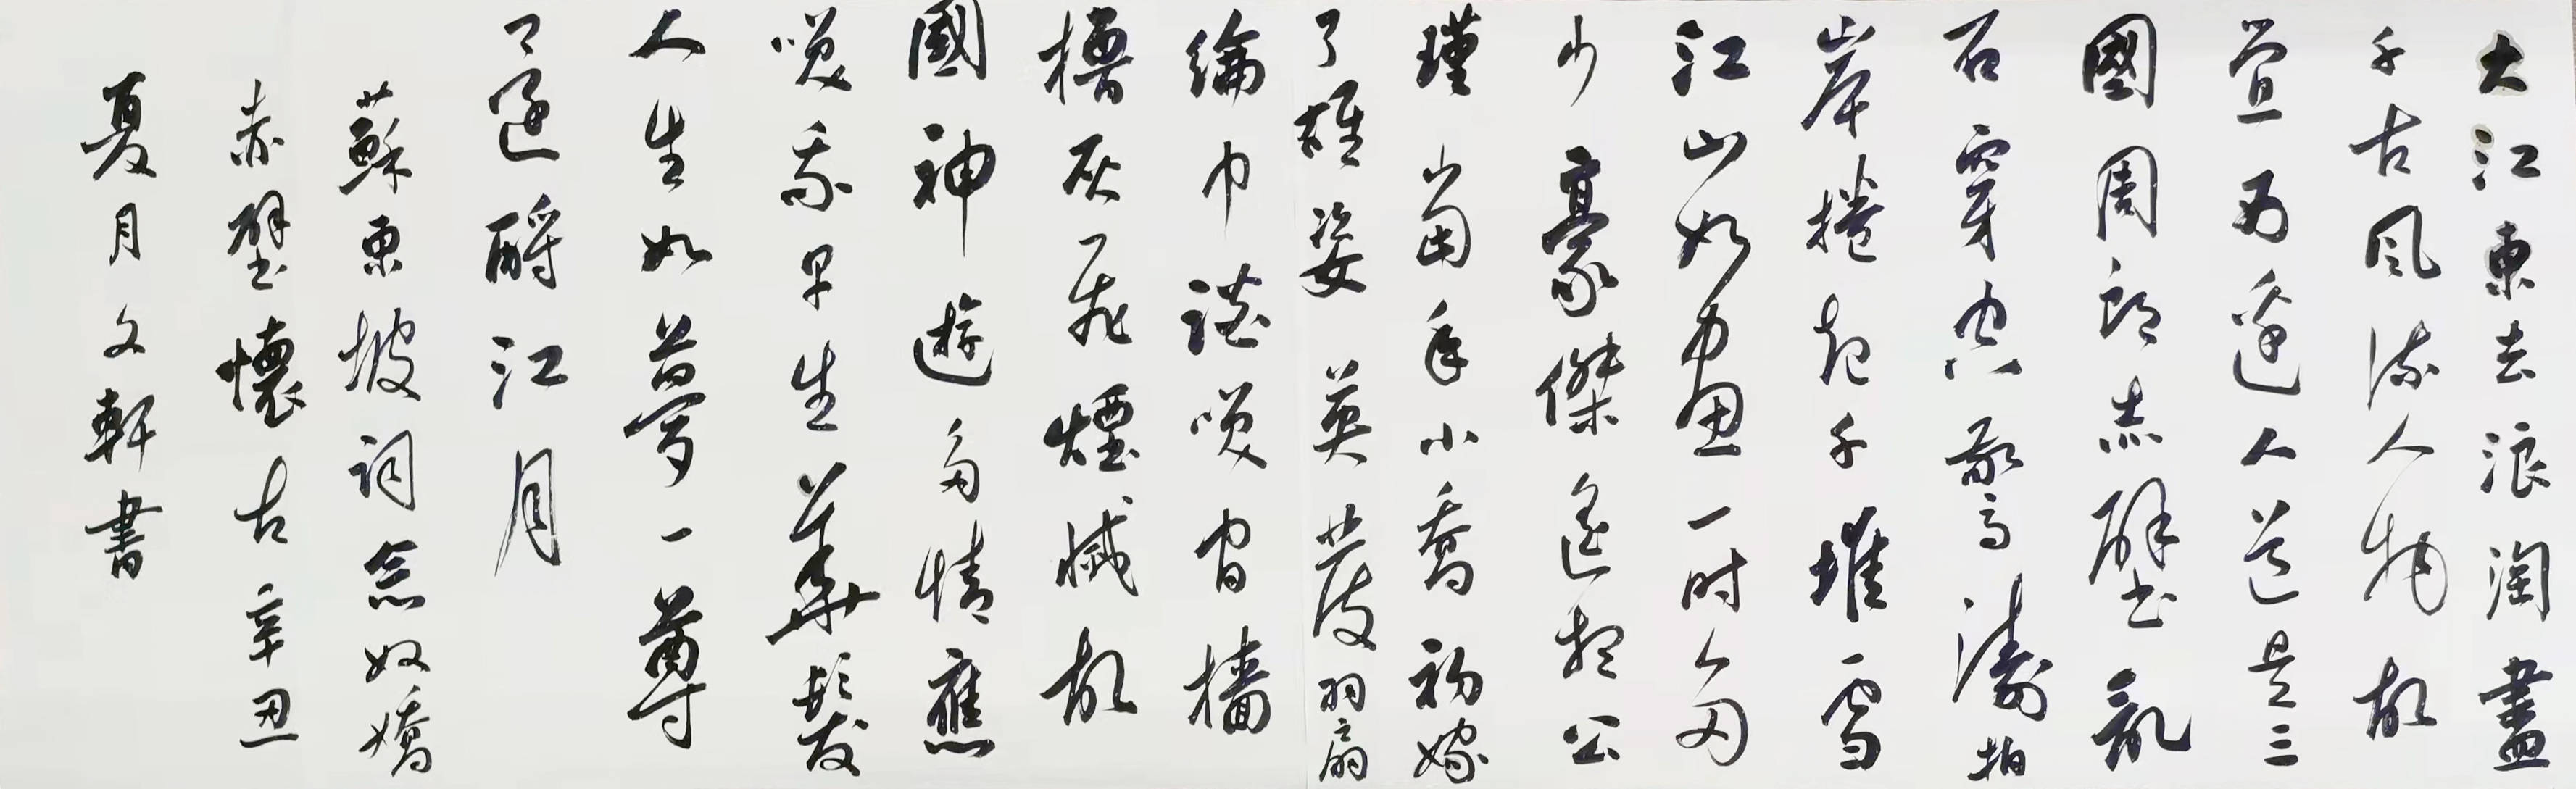 大江東去浪淘盡
千古風流人物故
壘西邊人道是三
國周郎赤壁亂
石穿空驚濤拍
岸捲起千堆雪
江山如畫一時多
少豪傑遙想公
瑾當年小喬初嫁
了雄姿英發羽扇
綸巾談笑間檣
櫓灰飛煙滅故
國神遊多情應
笑我早生華髮
人生如夢一尊
還酹江月
蘇東坡詞念奴嬌
赤壁懷古辛丑
夏月文軒書